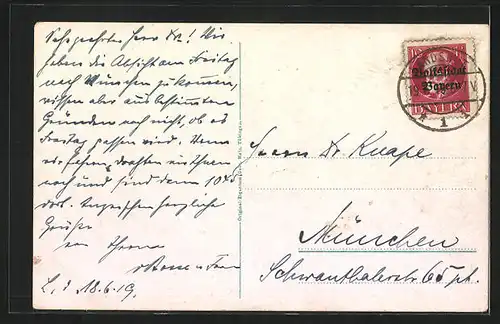 Sehr geehrter Herr Dr! Wir
haben die Absicht am Freitag
nach München zu kommen,
wissen aber aus bestimmten
Gründen noch nicht, ob es
Freitag passen wird. Wenn
wir fahren, drahten wir Ihnen
noch und sind dann 10 45
dort. Inzwischen herzliche
Grüße
von Ihrem
u. Frau
L, d 18.6.19.
Volksstaat
Bayern
BAYERN
1
Herrn Dr. Knape
München
Schwanthalerstr 65 pt.